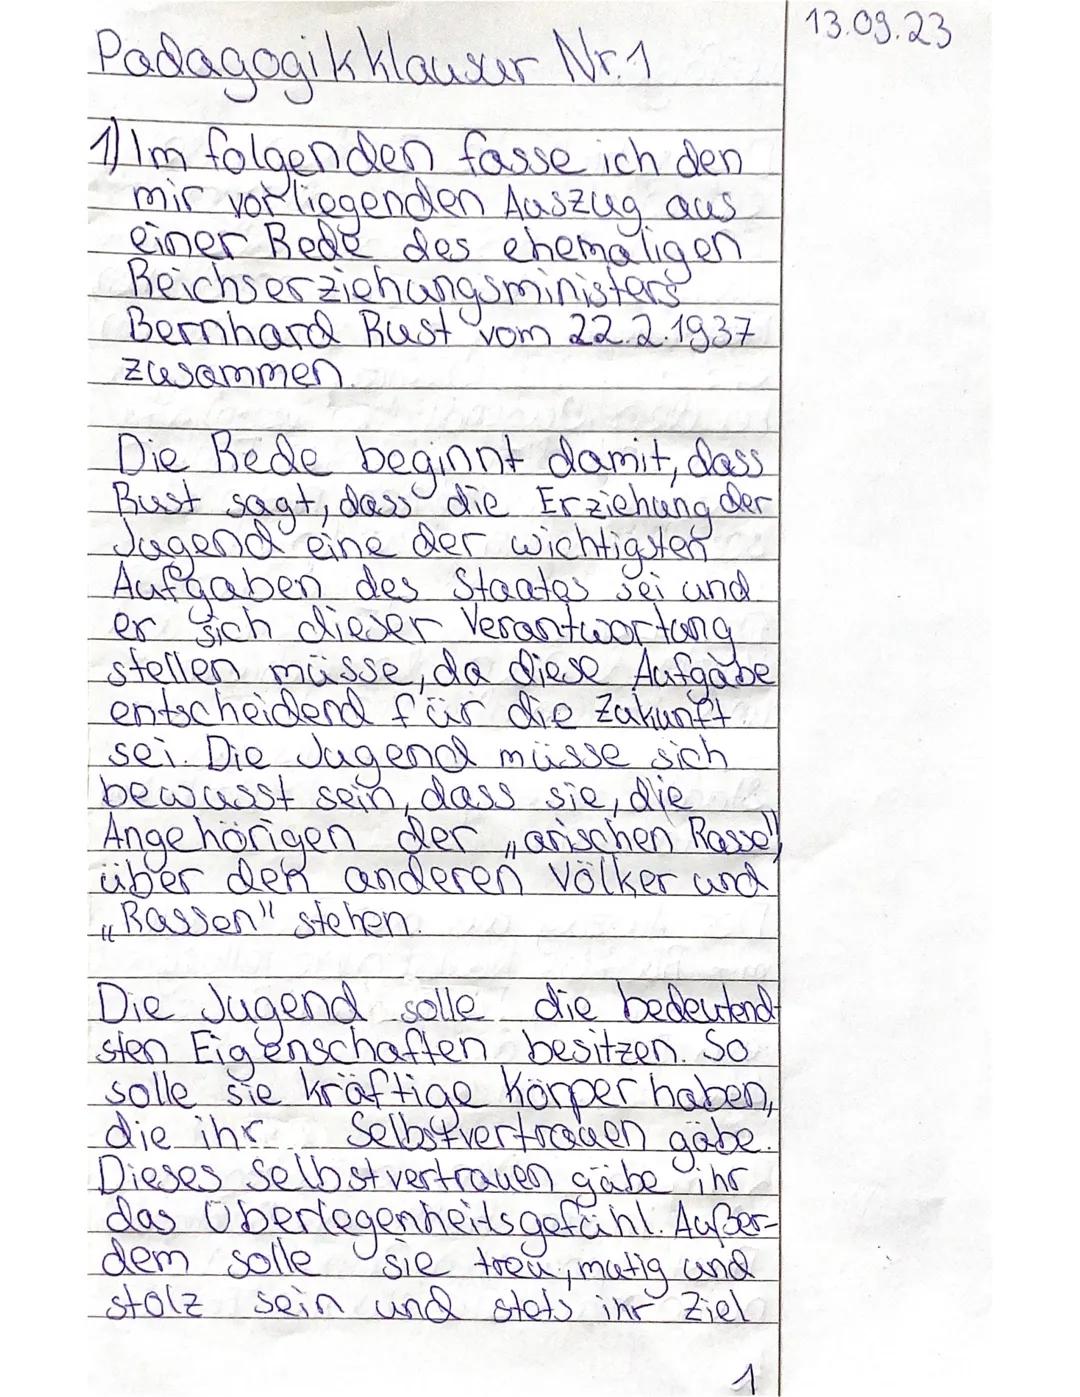 13.09.23
Pädagogikklausur Nr. 1
1) Im folgenden fasse ich den
mir vorliegenden Auszug aus
einer Rede des ehemaligen
Reichserziehungsministers
Bernhard Rust vom 22.2.1937
zusammen.
Die Rede beginnt damit, dass
Rust sagt, dass die Erziehung der
Jugend eine der wichtigsten
Aufgaben des Staates sei und
er sich dieser Verantwortung
stellen müsse, da diese Aufgabe
entscheidend für die Zukunft
sei. Die Jugend müsse sich
bewusst sein, dass sie, die
Angehörigen der „arischen Rasse",
über den anderen Völker und
„Rassen" stehen.
Die Jugend solle die bedeutend-
sten Eigenschaften besitzen. So
solle sie kräftige Körper haben,
die ihr Selbstvertrauen gäbe.
Dieses Selbstvertrauen gäbe ihr
das Überlegenheitsgefühl. Außer-
dem solle sie treu, mutig und
stolz sein und stets ihr Ziel
1